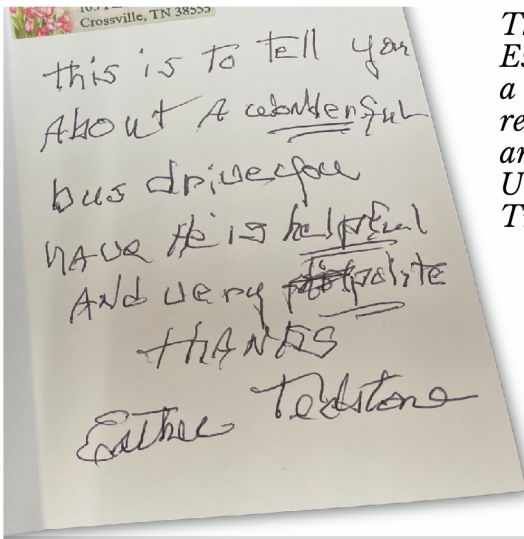 Crossville, TN 38555
this is to tell you
About A wonderful
bus driver you
have He is helpful
And very polite
THANKS
Esther Tedstone
Th
Es
a
re
an
U
T